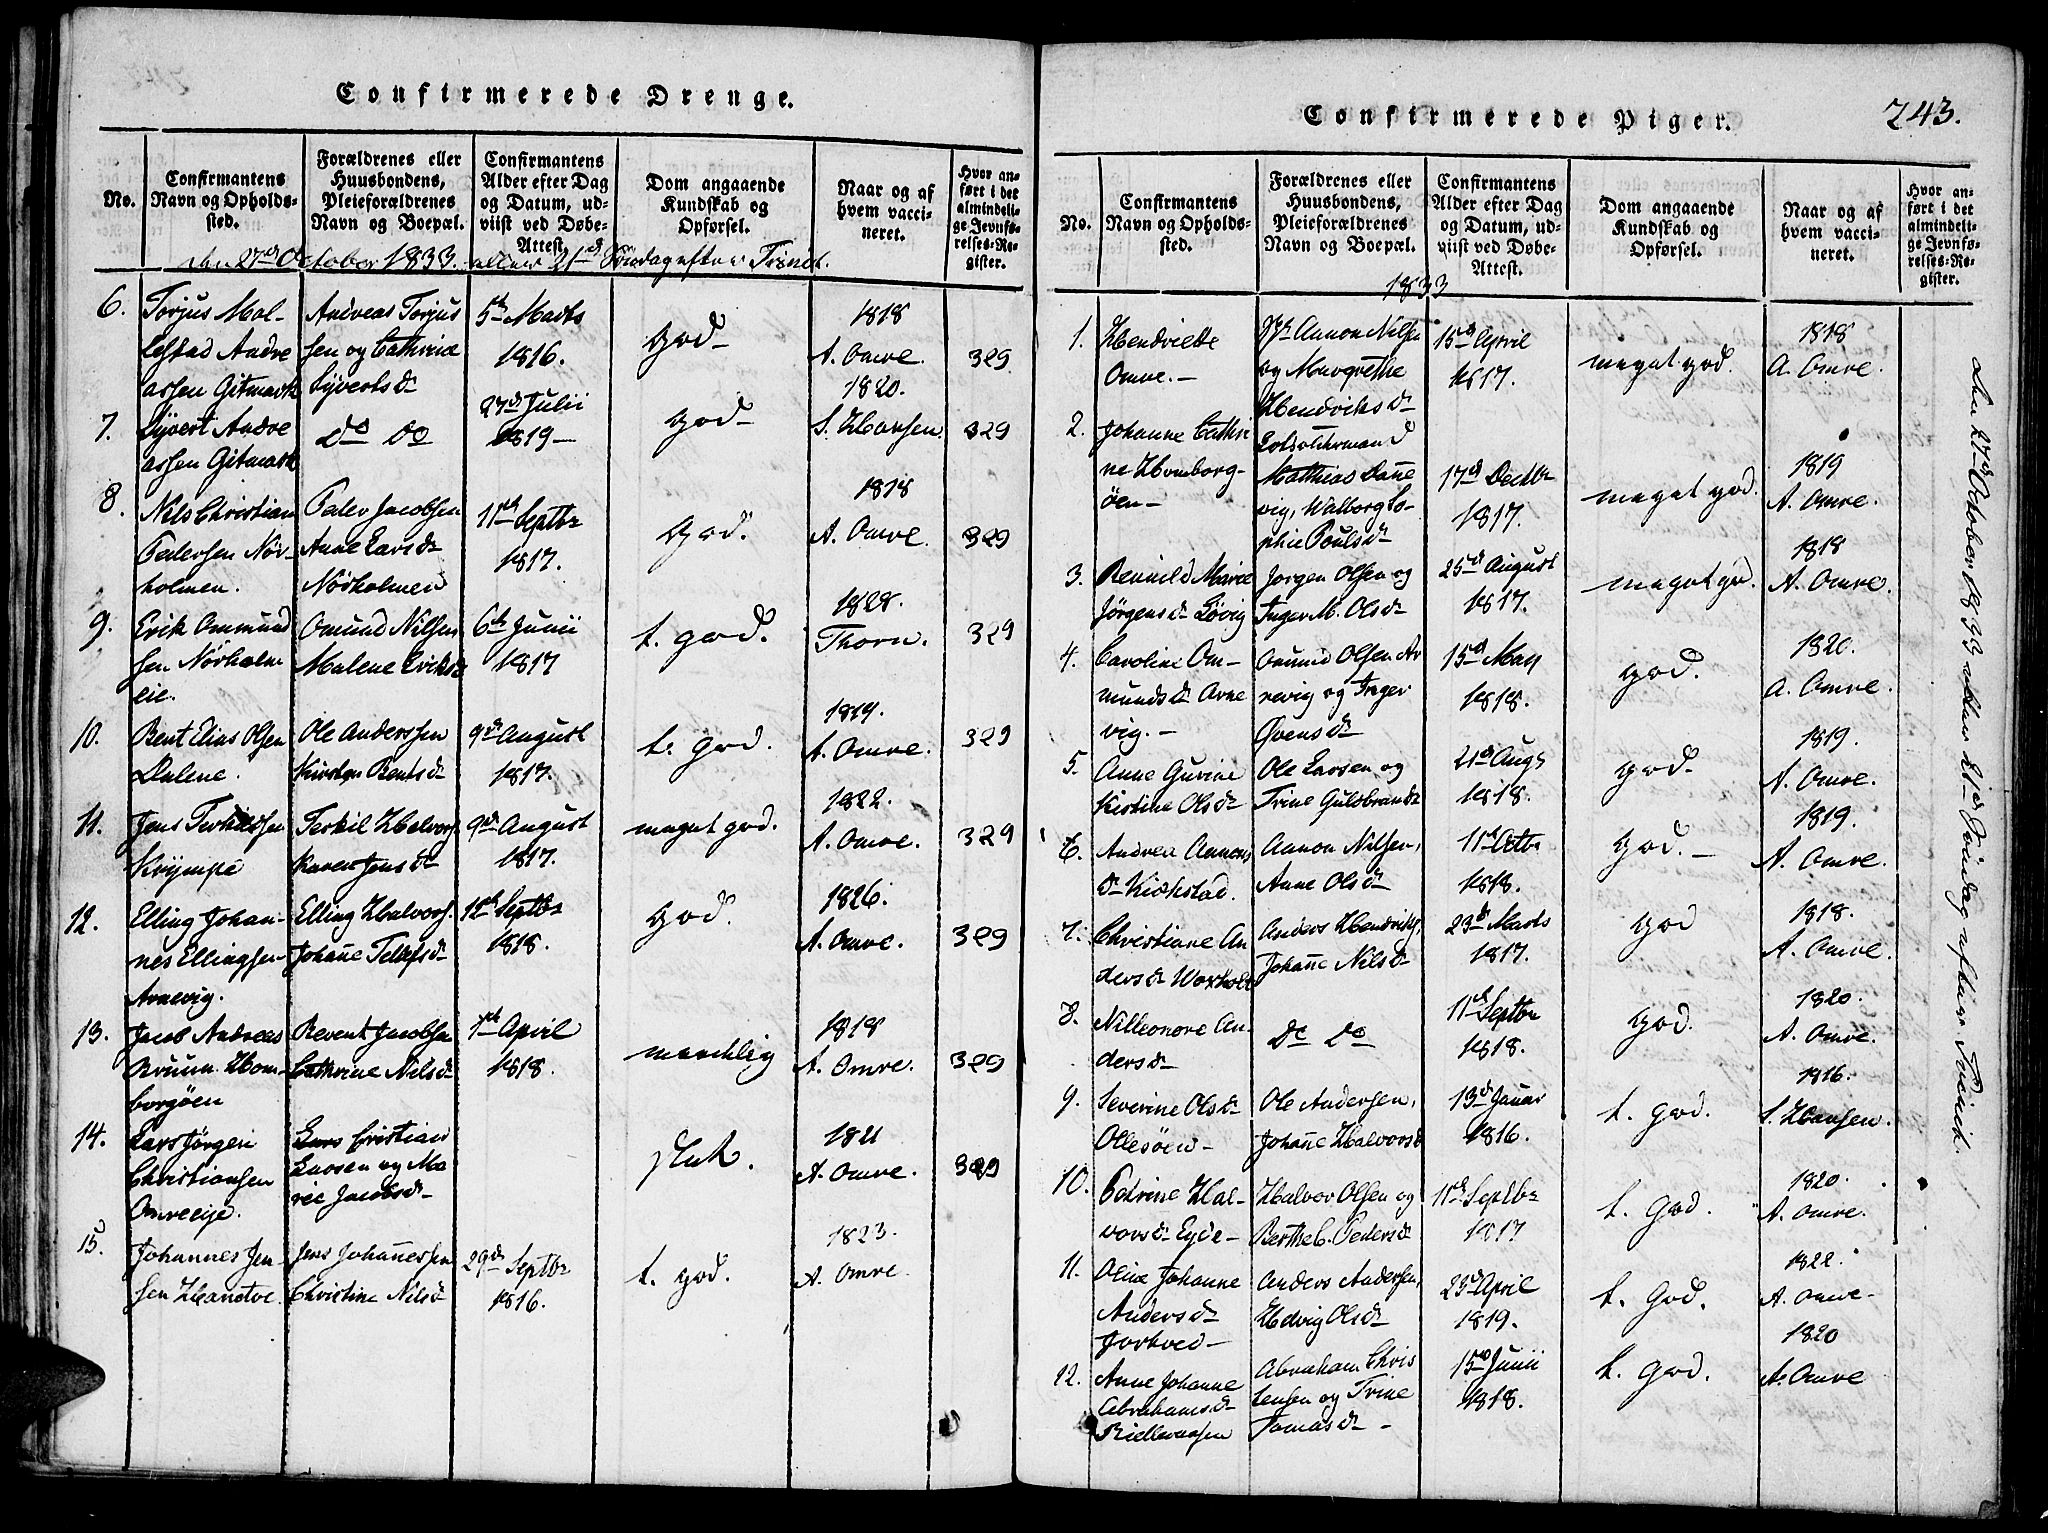 Confirmerede Drenge.
No.
Confirmantens
Navn og Opholds-
sted.
Forældrenes eller
Huusbondens,
Pleieforældrenes
Navn og Boepæl.
Confirmantens
Alder efter Dag
og Datum, ud-
viist ved Døbe-
Attest.
Dom angaaende
Kundskab og
Opførsel.
Naar og af
hvem vacci-
neret.
Hvor an-
ført i det
almindeli-
ge Jevnfø-
relses-Re-
gister.
den 27de October 1833. eller 21de Søndag efter Trinit.
6.
Torjus Mol-
lestad Andre
assen Gitmark
Andreas Torjus
sen og Cathrine
Syvertsd
5te Marts
1816.
god
1818
A. Omre.
329
7.
Syvert Andre
assen Gitmark
Do Do
27de Julii
1819
god
1820.
S. Hansen.
329
8.
Nils Christian
Pedersen Nør-
holmen.
Peder Jacobsen
Anne Larsd
Nörholmen
11te Septbr
1817.
god.
1818
A. Omre.
329
9.
Erik Ommund
sen Nörholm
eie.
Omund Nilsen
Malene Eriksd
6te Junii
1817
t. god.
1828.
Thorn.
329
10.
Bent Elias Olsen
Dalene.
Ole Anderssen
Kirsten Bentsd
9de August
1817.
t. god.
1819.
A. Omre.
329
11.
Jens Terkilssen
Krympe
Terkil Halvors.
Karen Jensd
9de August
1817.
meget god.
1822.
A. Omre.
329
12.
Elling Johan-
nes Ellingsen
Arnevig.
Elling Halvors.
Johanne Tellefsd
12te Septbr
1818.
god.
1826.
A. Omre.
329
13.
Jacob Andreas
Bruun Hom-
borgöen
Berent Jacobsen
Cathrine Nilsd
1ste April
1818.
maadelig
1818
A. Omre.
329
14.
Lars Jörgen
Christiansen
Omreeije.
Lars Cristian
Larsen og Ma
rie Jacobsd
slet.
1821
A. Omre.
329
15.
Johannes Jen
sen Hantve.
Jens Johannessen
Christine Nilsd
29de Septbr
1816.
t. god.
1823.
A. Omre.
Confirmerede Piger.
243.
No.
Confirmantens
Navn og Opholds-
sted.
Forældrenes eller
Huusbondens,
Pleieforældrenes
Navn og Boepæl.
Confirmantens
Alder efter Dag
og Datum, ud-
viist ved Døbe-
Attest.
Dom angaaende
Kundskab og
Opførsel.
Naar og af
hvem vacci-
neret.
Hvor an-
ført i det
almindeli-
ge Jevnfø-
relses-Re-
gister.
1833
1.
Hendriette
Omre.
Aanon Nilsen
og Margrethe
Hendriksd
15de April
1817.
meget god.
1818
A. Omre.
2.
Johanne Cathri
ne Homborg-
öen
Matthias Dane
vig, Walborg So-
phie Poulsd
17de Decbr
1817.
meget god.
1819
A. Omre.
3.
Marie
Jörgensd Lövig
Jörgen Olsen og
Inger M. Olsd
25de August
1817.
meget god.
1818
A. Omre.
4.
Caroline Om-
mundsd Arne
vig.
Omund Olsen Ar
nevig og Inger
Övensd
15de May
1818.
god.
1820.
A. Omre.
5.
Anne Gurine
Kistine Olsd
Ole Larsen og
Trine Guldbrandsd
21de Augs
1818.
god.
1819.
A. Omre.
6.
Andrea Aanons
d Kickstad.
Aanon Nilsen,
Anne Olsd
11te Octbr
1818.
god.
1819.
A. Omre.
7.
Christiane An
dersd Woxholt
Anders Hendriks.
Johanne Nilsd
23de Marts
1817.
god
1818.
A. Omre.
8.
Nilleonore An-
dersd
Do Do
11te Septbr
1818.
god.
1820.
A. Omre.
9.
Severine Olsd
Ollesöen
Ole Andersen,
Johanne Halvorsd
13de Januar
1816.
t. god.
1816.
S. Hansen.
10.
Petrine Hal-
vorsd Eyde
Halvor Olsen og
Berthe C. Pedersd
11te Septbr
1817
t. god.
1820.
A. Omre.
11.
Oline Johanne
Andersd
Jortved
Anders Andersen,
Hedvig Olsd
23de April
1819.
t. god.
1822.
A. Omre.
12.
Anne Johanne
Abrahamsd
Abraham Chris
tensen og Trine
Tomasd
15de Junii
1818.
t. god.
1820
A. Omre
den 27de October 1833 eller 21de Söndag efter Trinit.